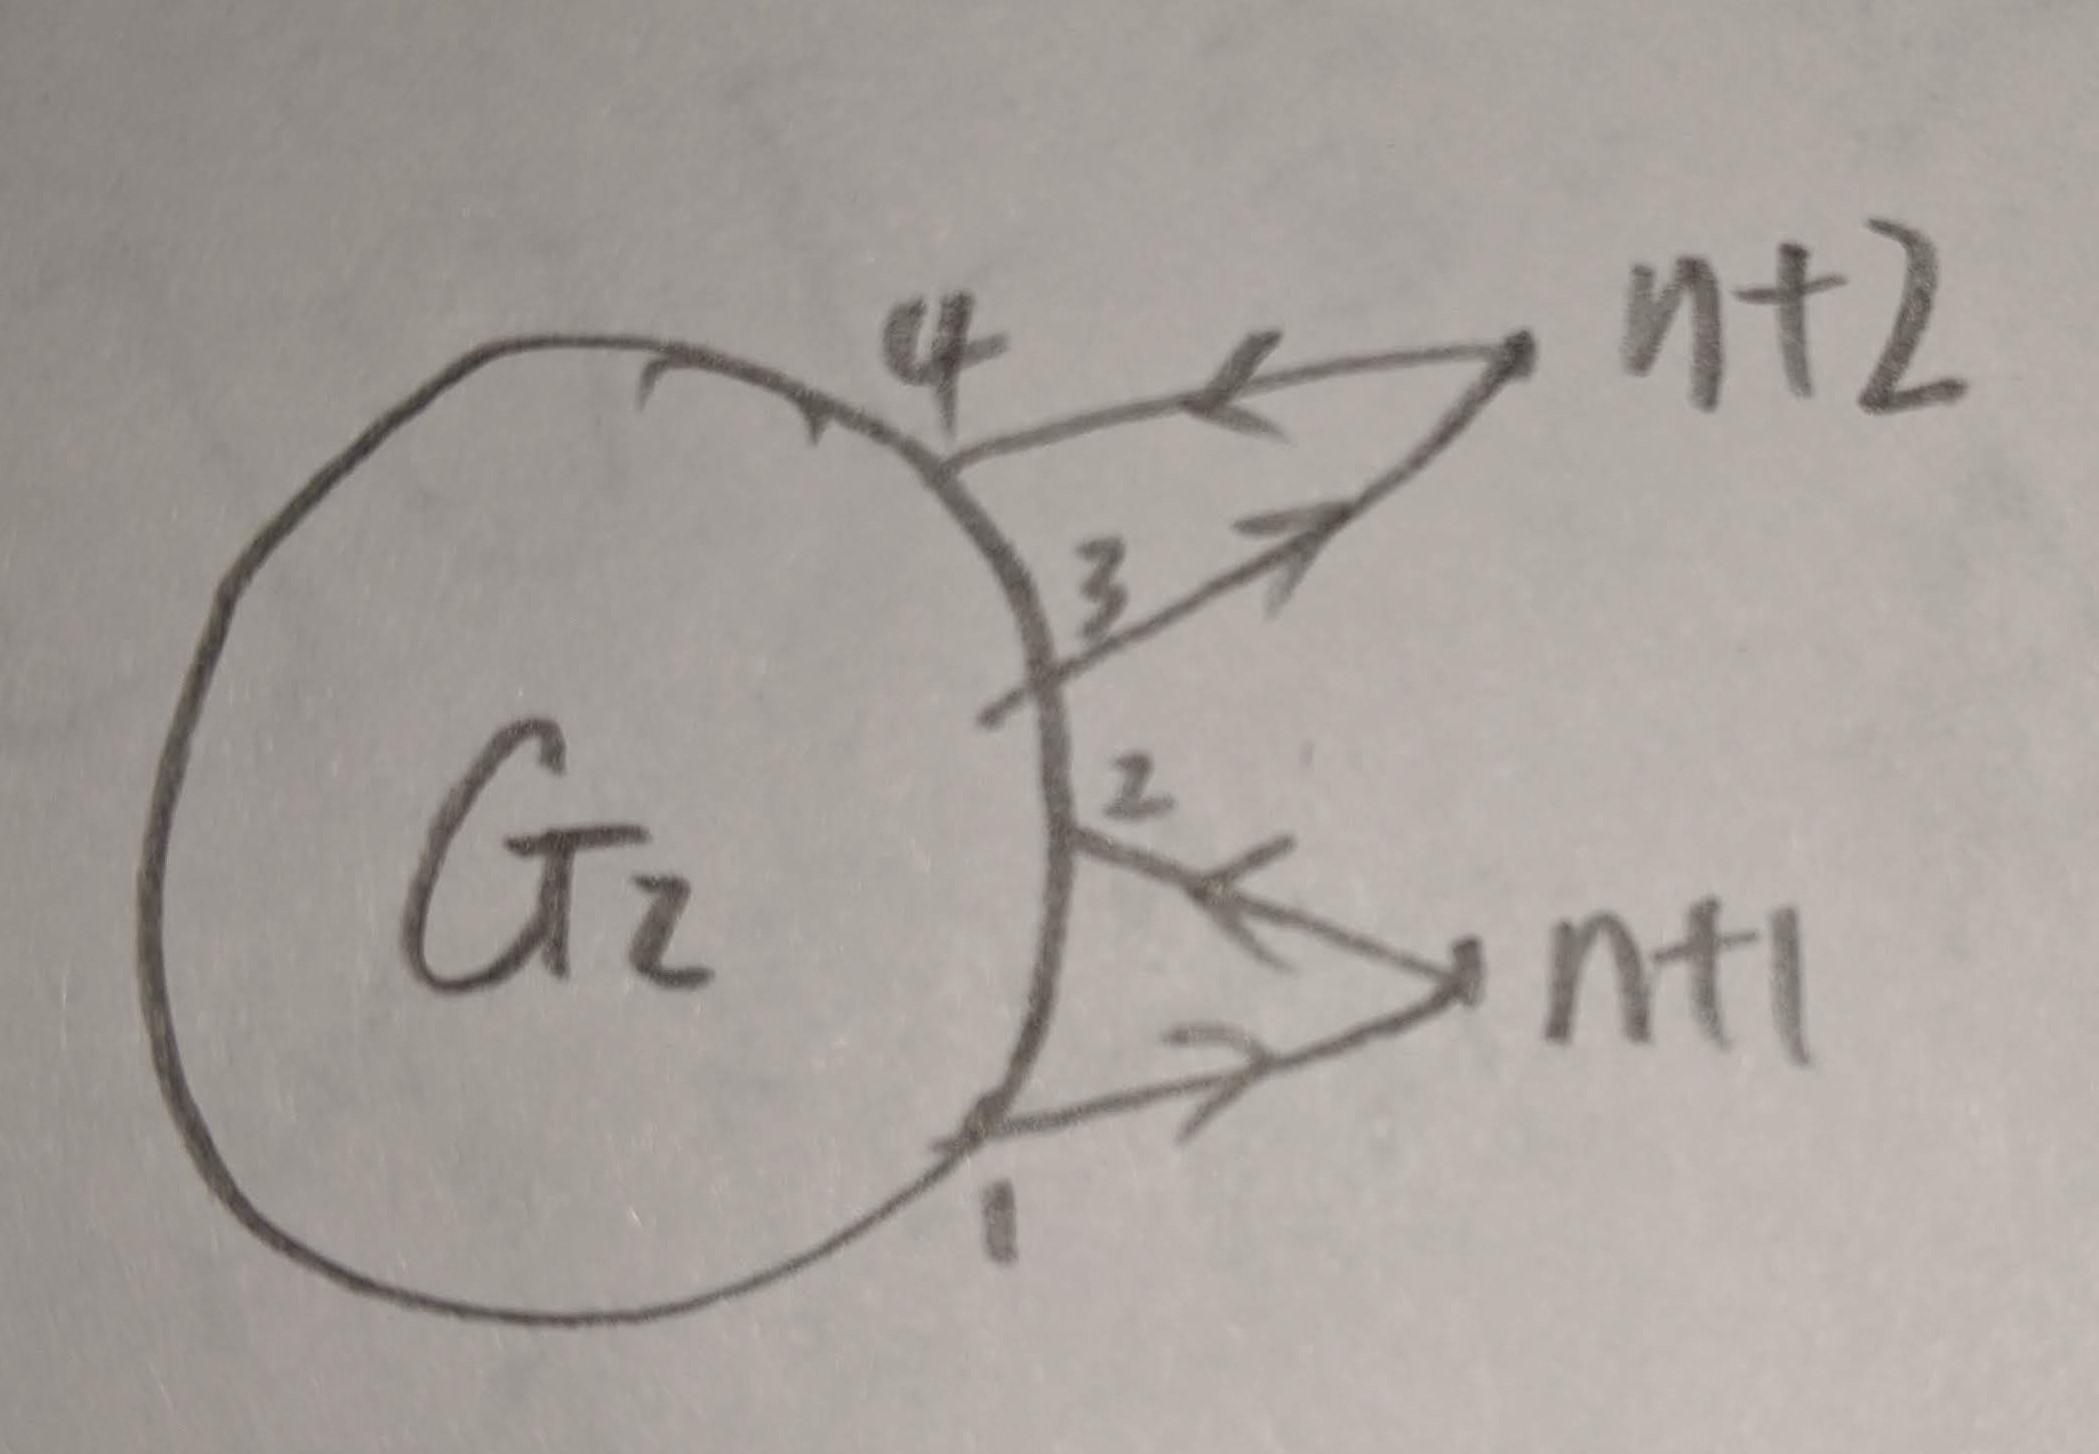 4
n+2
3
2
G2
n+1
1